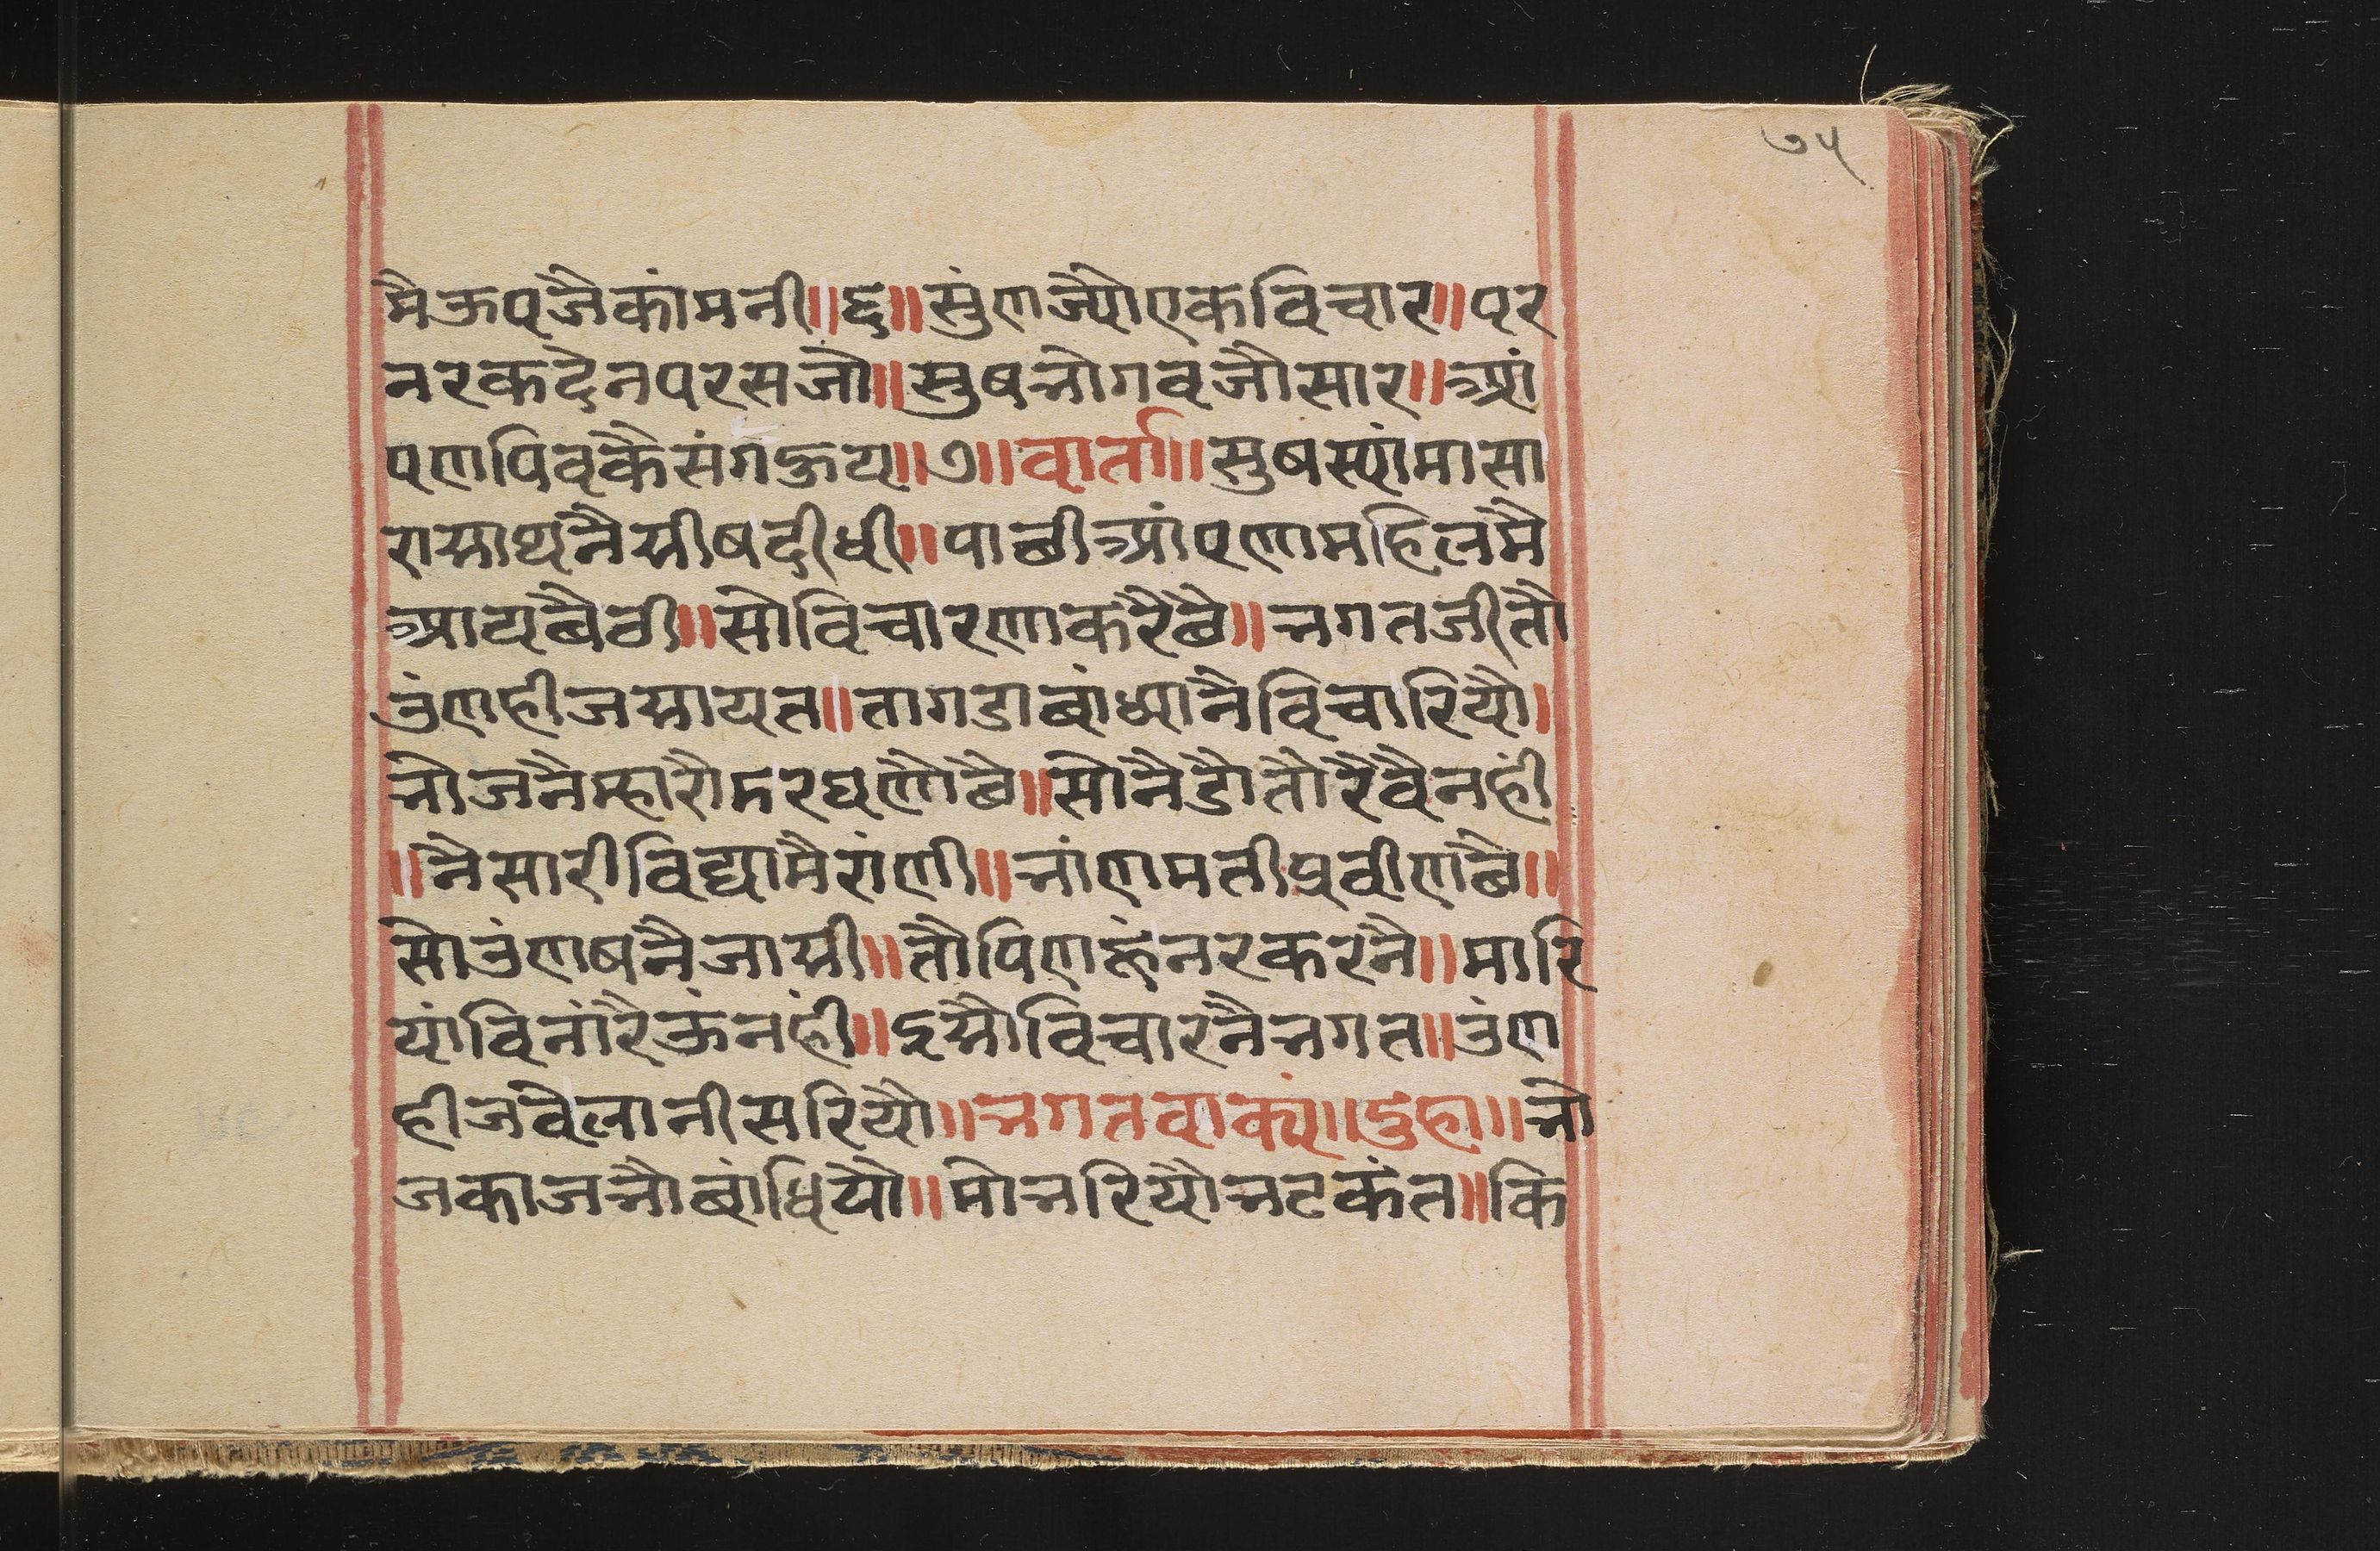 ७५
मैऊपजैकांमनी॥६॥सुंणज्यौएकविचार॥पर
नरकदैनपरसजो॥सुषभोगवजौसार॥आं
पणपिवकैसंगहुय॥७॥वार्ता॥सुषस्यांमासा
रासाथनैसीषदीधी॥पाछीआंपणामहिलमै
आयबैठी॥सोविचारणाकरैछै॥भगतजीतौ
उंणहीजसायत॥तागडाबांध्यानैविचारियौ।
भोजनैम्हारौडरघणौछै॥सोनैडौतौरैवैनहीं
॥नैसारीविद्यामैरांणी॥भांणमतीप्रवीणछै॥
सोउंणषनैजासी॥तौपिणहूंनरकरनै॥मारि
यांविनांरैऊंनहीं॥इसौविचारनैभगत॥उंण
हीजवेलानीसरियौ॥भगतवाक्यं॥दुहा॥भो
जकाजभौबांधियौ॥मोभरियौभटकंत॥कि